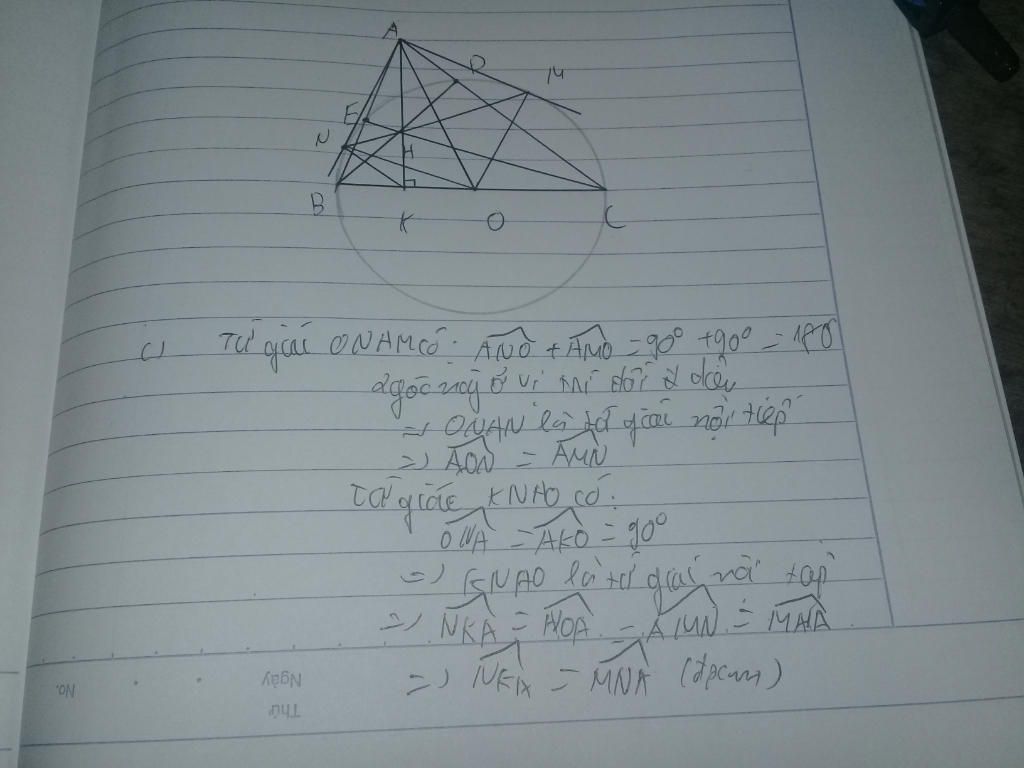 A
D
M
E
N
H
B
K
O
C
c) Tứ giác ONAM có: ANO + AMO = 90° + 90° = 180
2 góc này ở vị trí đối
=> ONAN là tứ giác nội tiếp
=> AON = AMN
Tứ giác KNAO có:
ONA = AKO = 90°
=> KNAO là tứ giác nội tiếp
=> NKA = NOA = AMN = MNA
=> NKA = MNA (đpcm)
No.
Ngày
Thứ